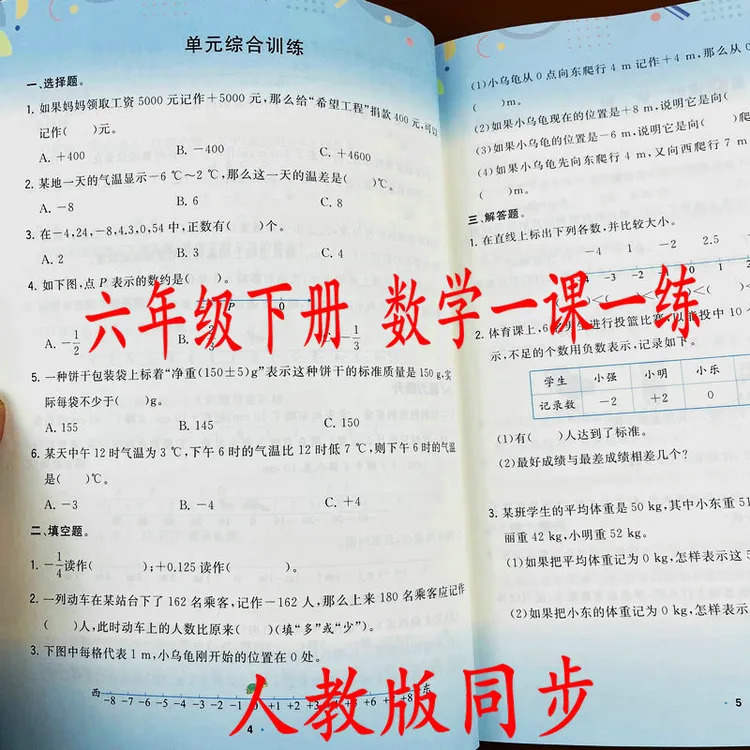 单元综合训练
一、选择题。
1. 如果妈妈领取工资 5000 元记作+5000 元,那么给“希望工程”捐款 400 元,可以
记作( )元。
A. +400 B. -400 C. +4600
2. 某地一天的气温显示-6 ℃~2 ℃,那么这一天的温差是( )℃。
A. -8 B. 6 C. 8
3. 在-4,24,-8,4.3,0,54 中,正数有( )个。
A. 2 B. 3 C. 4
4. 如下图,点 P 表示的数约是( )。
P 0
A. -1/2 C. -1/3
5. 一种饼干包装袋上标着“净重(150±5)g”表示这种饼干的标准质量是 150 g,实
际每袋不少于( )g。
A. 155 B. 145 C. 150
6. 某天中午 12 时气温为 3 ℃,下午 6 时的气温比 12 时低 7 ℃,则下午 6 时的气温
是( )℃。
A. -3 B. -4 C. +4
二、填空题。
1. -1/4读作( );+0.125 读作( )。
2. 一列动车在某站台下了 162 名乘客,记作-162 人,那么上来 180 名乘客应记作
( )人,此时动车上的人数比原来( )(填“多”或“少”)。
3. 下图中每格代表 1 m,小乌龟刚开始的位置在 0 处。
西 东
-8 -7 -6 -5 -4 -3 -2 -1 0 +1 +2 +3 +4 +5 +6 +7 +8
4
(1)小乌龟从 0 点向东爬行 4 m 记作+4 m,那么从 0
( )m。
(2)如果小乌龟现在的位置是+8 m,说明它是向(
(3)如果小乌龟的位置是-6 m,说明它是向( )爬
(4)如果小乌龟先向东爬行 4 m,又向西爬行 7 m
( )m。
三、解答题。
1. 在直线上标出下列各数,并比较大小。
-4 1 -2 2.5
-4 -3 -2 -1 0 1
( )<( )<(
2. 体育课上,6名男生进行投篮比赛,以能投中 10 个
示,不足的个数用负数表示,记录如下。
学生 小强 小明 小乐
记录数 -2 +2 0
(1)有( )人达到了标准。
(2)最好成绩与最差成绩相差几个?
3. 某班学生的平均体重是 50 kg,其中小东重 51
丽重 42 kg,小明重 52 kg。
(1)如果把平均体重记为 0 kg,怎样表示这
(2)如果把小东的体重记为 0 kg,怎样表示
5
六年级下册 数学一课一练
人教版同步